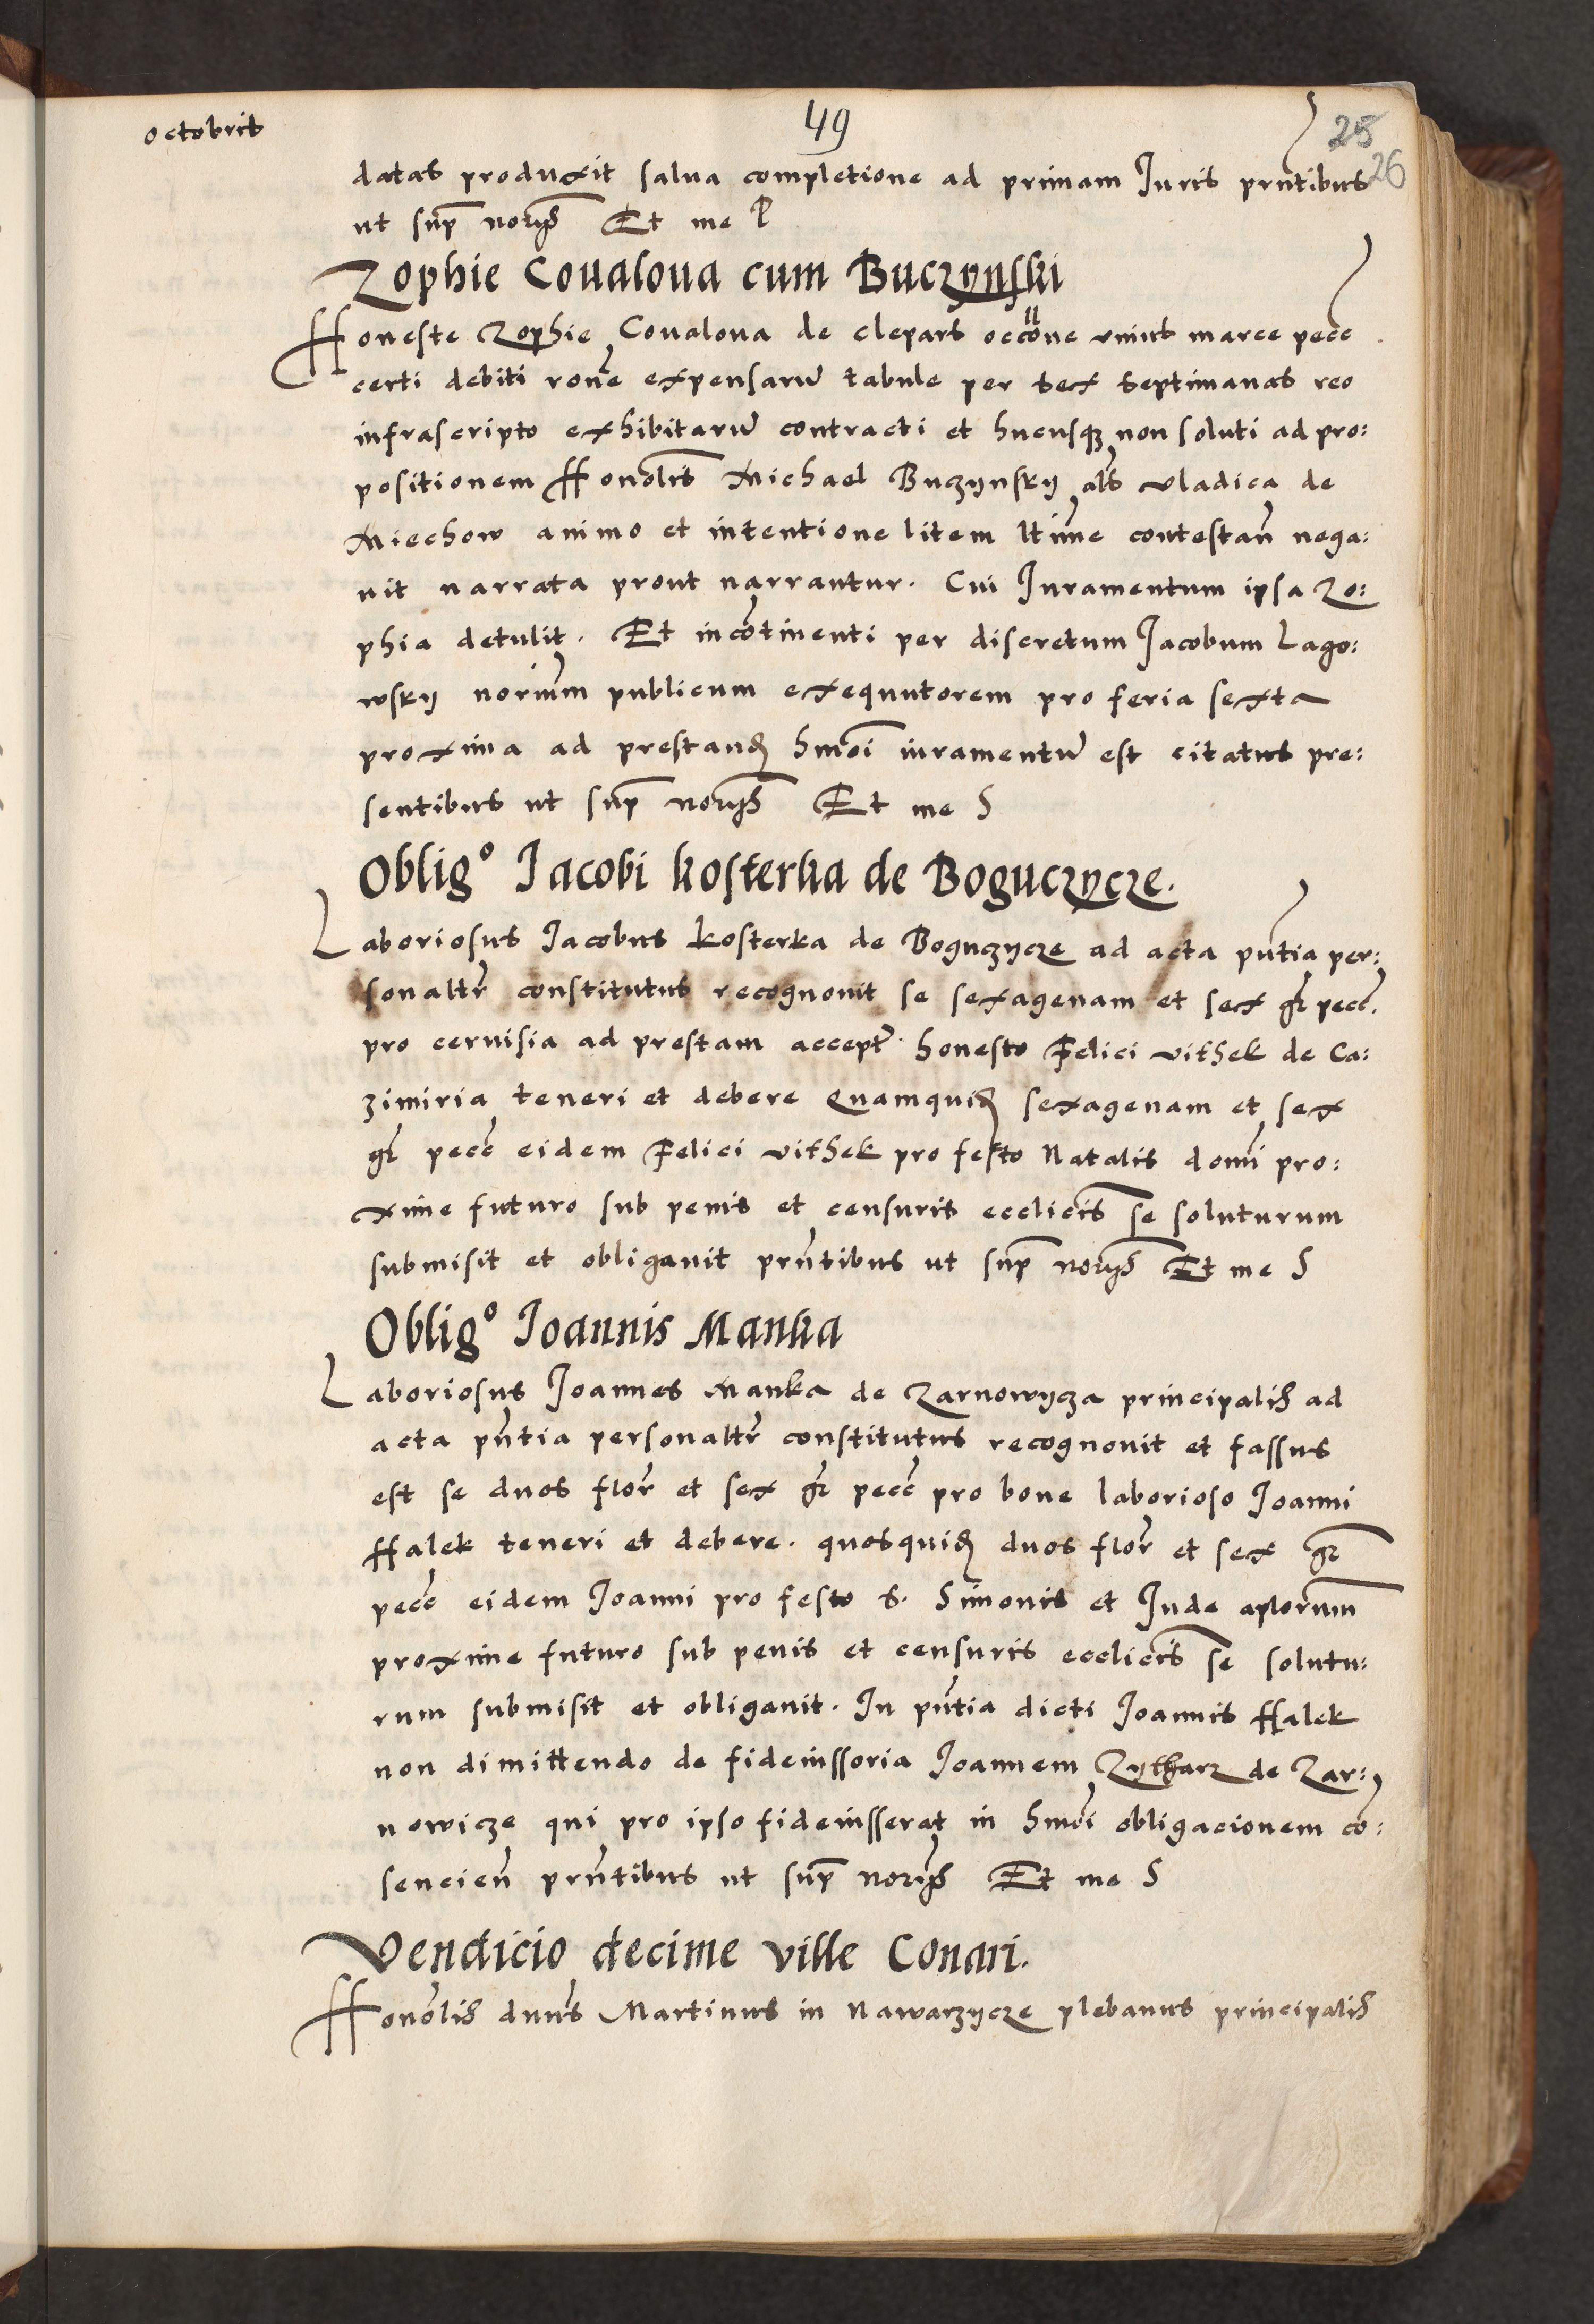 octobris
49
25
26
datas produxit salua completione ad primam Juris pñtibus
ut sup̃ noryß Et me P
Zophie Coualoua cum Buczynski
Honeste Zophie Coualoua de Clepars occõne vnius marce pecc
certi debiti rone expensarũ tabule per sex septimanas reo
infrascripto exhibitarũ contracti et hucusqȝ non soluti ad pro:
positionem Honolis Michael Buczynsky als vladica de
Miechow animo et intentione litem ltime contestañ nega:
uit narrata prout narrantur. Cui Juramentum ipsa Zo:
phia detulit. Et incõtinenti per discretum Jacobum Lago:
wsky norium publicum exequutorem pro feria sexta
proxima ad prestanđ hmõi iuramentũ est citatus pre:
sentibus ut sup̃ noryß Et me S
Oblig° Jacobi kosterka de Boguczycze.
Laboriosus Jacobus kosterka de Boguczycze ad acta pñtia per:
sonaltr̃ constitutus recognouit se sexagenam et sex gr̃ pecc.
pro ceruisia ad prestam accept̃ honesto Felici vithek de Ca:
zimiria teneri et debere Quamquiđ sexagenam et sex
gr̃ pecc eidem Felici vithek pro festo Natalis domi pro:
xime futuro sub penis et censuris ecclicis se soluturum
submisit et obligauit prñtibus ut sup̃ noryß Et me S
Oblig° Joannis Manka
Laboriosus Joannes Manka de Zarnowycza principaliß ad
acta pñtia personaltr̃ constitutus recognouit et fassus
est se duos flor̃ et sex gr̃ pecc pro boue laborioso Joanni
Halek teneri et debere. quosquiđ duos flor̃ et sex gr̃
pecc eidem Joanni pro festo S. Simonis et Jude aplorum
proxime futuro sub penis et censuris ecclicis se solutu:
rum submisit et obligauit. In pñtia dicti Joannis Halek
non dimittendo de fideiussoria Joannem Zytharz de Zar:
nowicze qui pro ipso fideiusserat in hmõi obligacionem cõ:
sencieñ prñtibus ut sup̃ noryß Et me S
Vendicio decime ville Conari.
Honoliß dnus Martinus in Nawarzycze plebanus principaliß